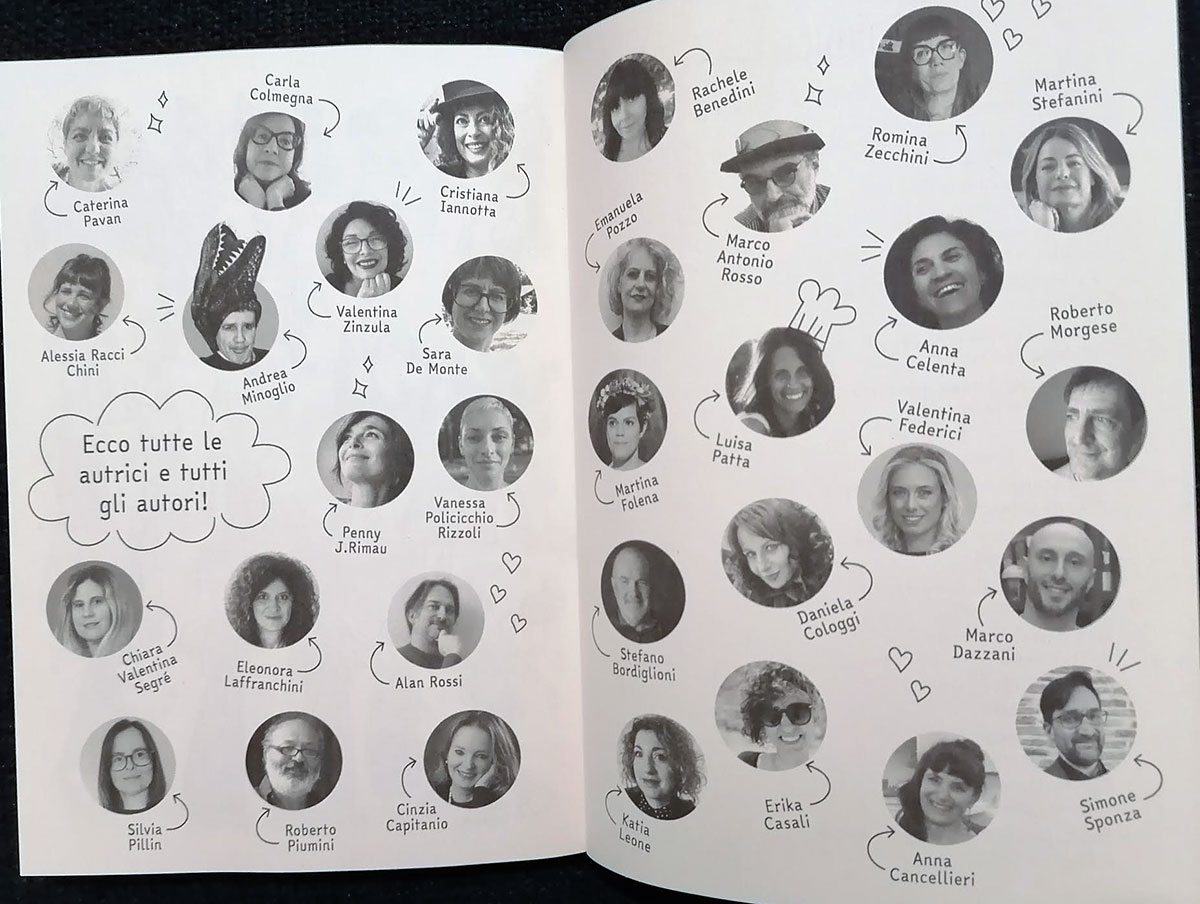 Caterina
Pavan
Carla
Colmegna
Cristiana
Iannotta
Alessia Racci
Chini
Andrea
Minoglio
Valentina
Zinzula
Sara
De Monte
Ecco tutte le
autrici e tutti
gli autori!
Penny
J.Rimau
Vanessa
Policicchio
Rizzoli
Chiara
Valentina
Segré
Eleonora
Laffranchini
Alan Rossi
Silvia
Pillin
Roberto
Piumini
Cinzia
Capitanio
Rachele
Benedini
Romina
Zecchini
Martina
Stefanini
Emanuela
Pozzo
Marco
Antonio
Rosso
Anna
Celenta
Roberto
Morgese
Martina
Folena
Luisa
Patta
Valentina
Federici
Stefano
Bordiglioni
Daniela
Cologgi
Marco
Dazzani
Katia
Leone
Erika
Casali
Anna
Cancellieri
Simone
Sponza